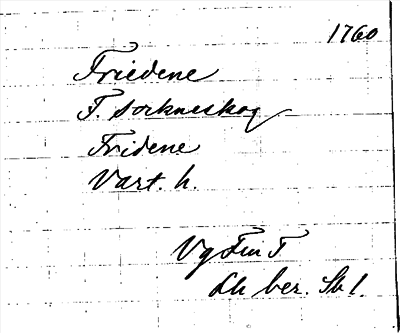 1760
Friedene
F. sockneskog
Fridene
Vart. h.
Vg Fin F
Lh ber. Sk 1.